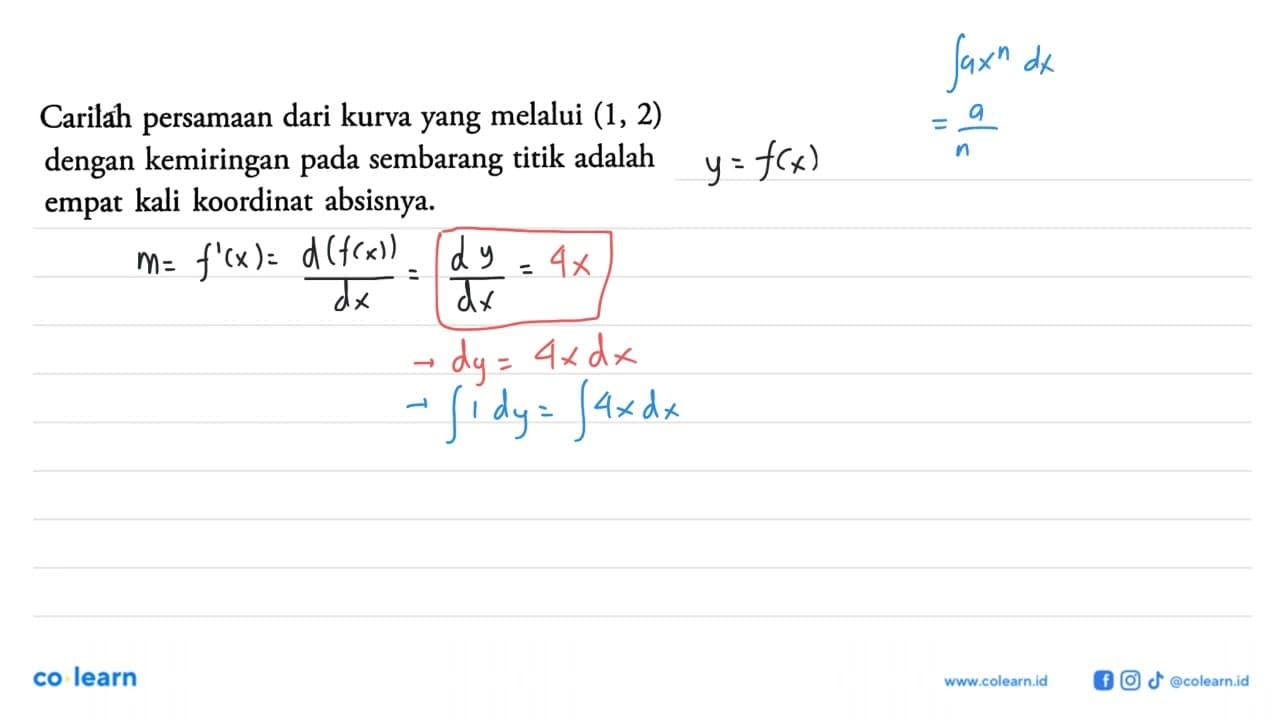 Carilah persamaan dari kurva yang melalui (1, 2)
dengan kemiringan pada sembarang titik adalah
empat kali koordinat absisnya.
y = f(x)
∫ax^n dx
= a/n
m = f'(x) = d(f(x))/dx = dy/dx = 4x
→ dy = 4x dx
→ ∫1 dy = ∫4x dx
co learn
www.colearn.id
@colearn.id